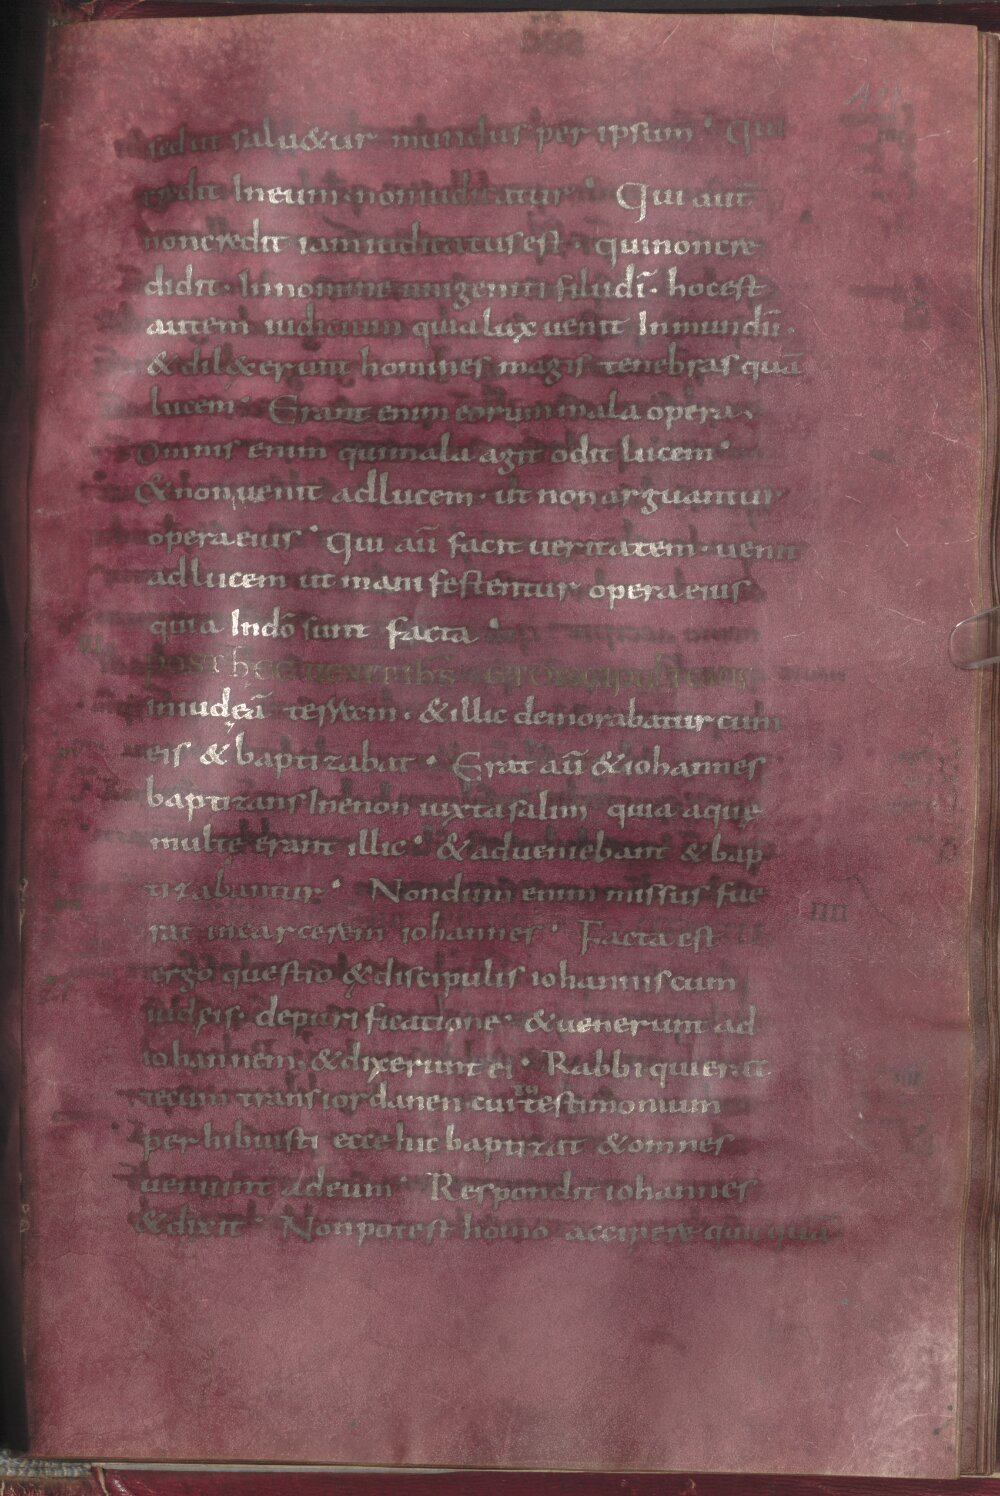 sed ut salu&ur mundus per ipsum · Qui
credit In eum · non iudicatur · Qui aut̄
non credit iam iudicatus est · qui non cre
didit · In nomine unigeniti filii dī · hoc est
autem iudicium quia lux uenit In mundū ·
& dil&erunt homines magis tenebras quā
lucem · Erant enim eorum mala opera ·
Omnis enim qui mala agit odit lucem ·
& non uenit ad lucem · ut non arguantur
opera eius · Qui aū facit ueritatem · uenit
ad lucem ut manifestentur opera eius
quia In dō sunt facta ·
post hęc uenit ihs
in iudęā terram · & illic demorabatur cum
eis & baptizabat · Erat aū & iohannes
baptizans In enon iuxta salim quia aquę
multę erant illic · & adueniebant & bap
tizabantur · Nondum enim missus fue
rat in carcerem iohannes · Facta est
IIII
ergo questio ex discipulis iohannis cum
iudęis · de purificatione · & uenerunt ad
iohannem · & dixerunt ei · Rabbi qui erat
tecum trans iordanen cui tu testimonium
perhibuisti ecce hic baptizat & omnes
ueniunt ad eum · Respondit iohannes
& dixit · Non potest homo accipere quicquā